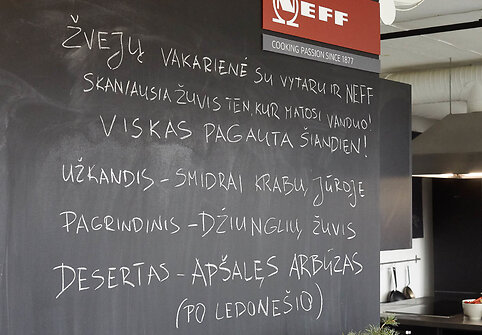 NEFF
COOKING PASSION SINCE 1877
ŽVEJŲ VAKARIENĖ SU VYTARU IR NEFF
SKANIAUSIA ŽUVIS TEN, KUR MATOSI VANDUO!
VISKAS PAGAUTA ŠIANDIEN!
UŽKANDIS - SMIDRAI KRABŲ JŪROJE
PAGRINDINIS - DŽIUNGLIŲ ŽUVIS
DESERTAS - APŠALĘS ARBŪZAS
(PO LEDONEŠIO)